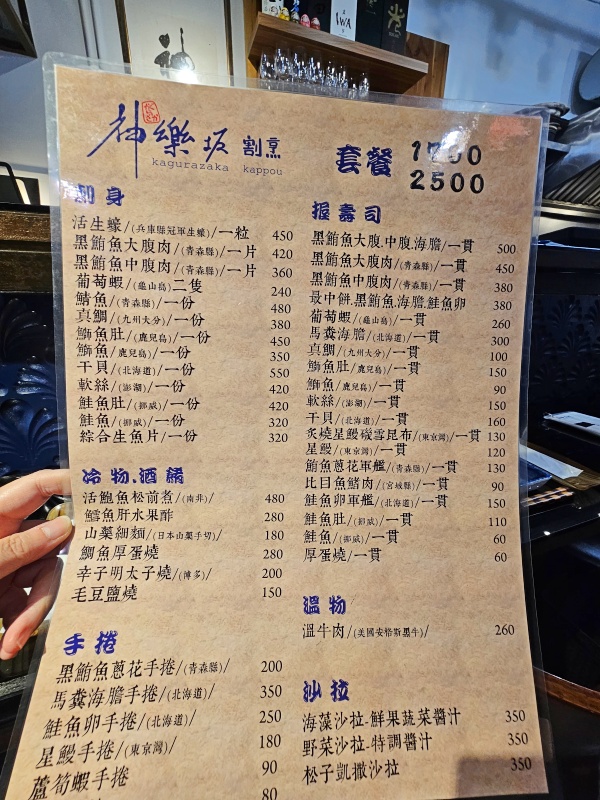 神樂坂 割烹
kagurazaka kappou
套餐 1700
2500
刺身
活生蠔/(兵庫縣冠軍生蠔)/一粒 450
黑鮪魚大腹肉/(青森縣)/一片 420
黑鮪魚中腹肉/(青森縣)/一片 360
葡萄蝦/(龜山島)二隻 240
鯖魚/(青森縣)/一份 480
真鯛/(九州大分)/一份 380
鰤魚肚/(鹿兒島)/一份 450
鰤魚/(鹿兒島)/一份 350
干貝/(北海道)/一份 550
軟絲/(澎湖)/一份 420
鮭魚肚/(挪威)/一份 420
鮭魚/(挪威)/一份 320
綜合生魚片/一份 320
冷物.酒餚
活鮑魚松前煮/(南非)/ 480
鱈魚肝水果酢 280
山藥細麵/(日本山藥手切)/ 180
鯛魚厚蛋燒 280
辛子明太子燒/(博多)/ 200
毛豆鹽燒 150
手捲
黑鮪魚蔥花手捲/(青森縣)/ 200
馬糞海膽手捲/(北海道)/ 350
鮭魚卵手捲/(北海道)/ 250
星鰻手捲/(東京灣)/ 180
蘆筍蝦手捲 90
80
握壽司
黑鮪魚大腹.中腹.海膽/一貫 500
黑鮪魚大腹肉/(青森縣)/一貫 450
黑鮪魚中腹肉/(青森縣)/一貫 380
最中餅.黑鮪魚.海膽.鮭魚卵 380
葡萄蝦/(龜山島)/一貫 260
馬糞海膽/(北海道)/一貫 300
真鯛/(九州大分)/一貫 100
鰤魚肚/(鹿兒島)/一貫 150
鰤魚/(鹿兒島)/一貫 90
軟絲/(澎湖)/一貫 150
干貝/(北海道)/一貫 160
炙燒星鰻礙雪昆布/(東京灣)一貫 130
星鰻/(東京灣)/一貫 120
鮪魚蔥花軍艦/(青森縣)/一貫 130
比目魚鰭肉/(宮城縣)/一貫 90
鮭魚卵軍艦/(北海道)/一貫 150
鮭魚肚/(挪威)/一貫 110
鮭魚/(挪威)/一貫 60
厚蛋燒/一貫 60
溫物
溫牛肉/(美國安格斯黑牛)/ 260
沙拉
海藻沙拉-鮮果蔬菜醬汁 350
野菜沙拉-特調醬汁 350
松子凱撒沙拉 350